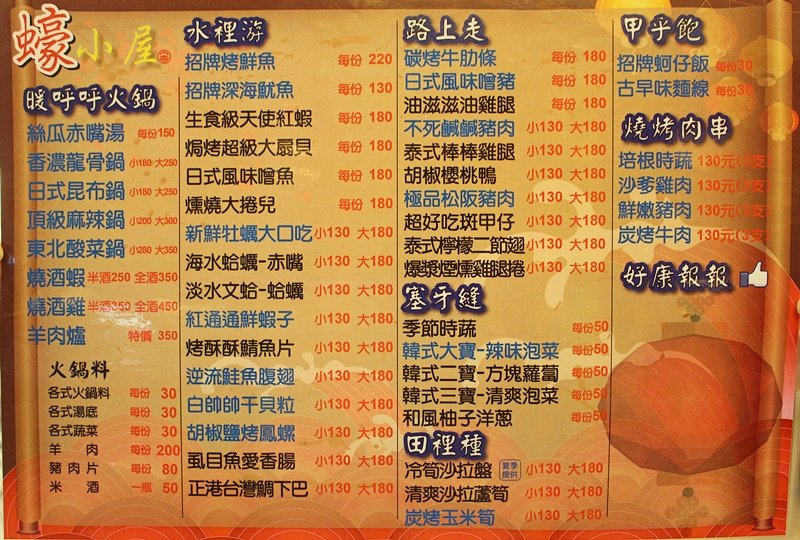 蠔小屋
暖呼呼火鍋
絲瓜赤嘴湯 每份150
香濃龍骨鍋 小180 大250
日式昆布鍋 小180 大250
頂級麻辣鍋 小200 大300
東北酸菜鍋 小280 大350
燒酒蝦 半酒250 全酒350
燒酒雞 半酒350 全酒450
羊肉爐 特價 350
火鍋料
各式火鍋料 每份 30
各式湯底 每份 30
各式蔬菜 每份 30
羊肉 每份 200
豬肉片 每份 80
米酒 一瓶 50
水裡游
招牌烤鮮魚 每份 220
招牌深海魷魚 每份 130
生食級天使紅蝦 每份 180
焗烤超級大扇貝 每份 180
日式風味噌魚 每份 180
燻燒大捲兒 每份 180
新鮮牡蠣大口吃 小130 大180
海水蛤蠣-赤嘴 小130 大180
淡水文蛤-蛤蠣 小130 大180
紅通通鮮蝦子 小130 大180
烤酥酥鯖魚片 小130 大180
逆流鮭魚腹翅 小130 大180
白帥帥干貝粒 小130 大180
胡椒鹽烤鳳螺 小130 大180
虱目魚愛香腸 小130 大180
正港台灣鯛下巴 小130 大180
路上走
碳烤牛肋條 每份 180
日式風味噌豬 每份 180
油滋滋油雞腿 每份 180
不死鹹鹹豬肉 小130 大180
泰式棒棒雞腿 小130 大180
胡椒櫻桃鴨 小130 大180
極品松阪豬肉 小130 大180
超好吃斑甲仔 小130 大180
泰式檸檬二節翅 小130 大180
爆漿煙燻雞腿捲 小130 大180
塞牙縫
季節時蔬 每份50
韓式大寶-辣味泡菜 每份50
韓式二寶-方塊蘿蔔 每份50
韓式三寶-清爽泡菜 每份50
和風柚子洋蔥 每份50
田裡種
冷筍沙拉盤 夏季提供 小130 大180
清爽沙拉蘆筍 小130 大180
炭烤玉米筍 小130 大180
甲乎飽
招牌蚵仔飯 每份30
古早味麵線 每份30
燒烤肉串
培根時蔬 130元(3支
沙爹雞肉 130元(3支
鮮嫩豬肉 130元(3支
炭烤牛肉 130元(3支
好康報報